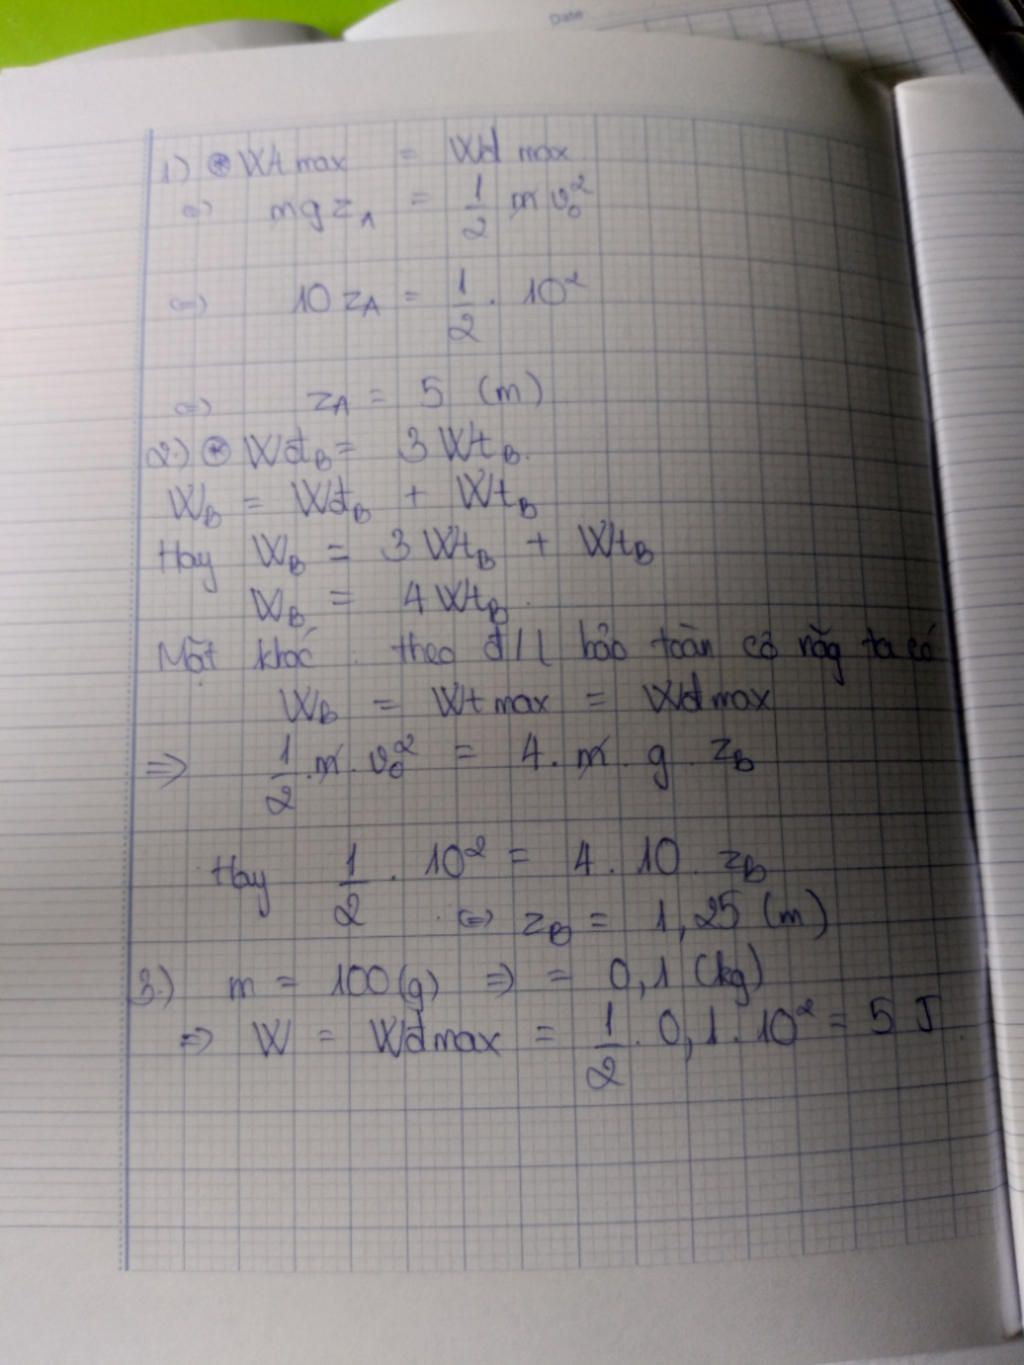 Date
1) ⊛ Wt max = Wd max
⇔ mg z_A = 1/2 m v_0^2
⇔ 10 z_A = 1/2 . 10^2
⇔ z_A = 5 (m)
2.) ⊛ Wđ_B = 3 Wt_B.
W_B = Wđ_B + Wt_B
Hay W_B = 3 Wt_B + Wt_B
W_B = 4 Wt_B.
Mặt khác : theo đ/l bảo toàn cơ năg ta có
W_B = Wt max = Wđ max
⇒ 1/2 . m . v_0^2 = 4 . m . g . z_B
Hay 1/2 . 10^2 = 4 . 10 . z_B
⇔ z_B = 1,25 (m)
3.) m = 100 (g) ⇒ = 0,1 (kg)
⇒ W = Wđ max = 1/2 . 0,1 . 10^2 = 5 J